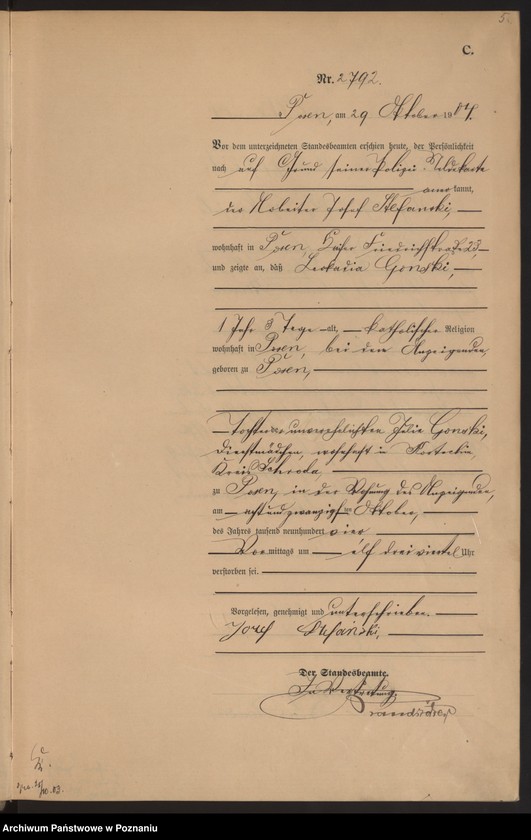 C.
Nr. 2792.
Posen, am 29 Oktober 1904.
Vor dem unterzeichneten Standesbeamten erschien heute, der Persönlichkeit
nach auf Grund seiner Polizei Meldekarte
anerkannt,
der Arbeiter Josef Stefanski,
wohnhaft in Posen, Kaiser Friedrichstraße 23,
und zeigte an, daß Leokadia Gonski,
1 Jahr 8 Tage alt, katholischer Religion
wohnhaft in Posen, bei dem Anzeigenden,
geboren zu Posen,
Tochter der unverehelichten Julie Gonski,
Dienstmädchen, wohnhaft in
Kreis Schroda,
zu Posen, in der Wohnung des Anzeigenden,
am achtundzwanzigsten Oktober,
des Jahres tausend neunhundert vier
Vormittags um elf dreiviertel Uhr
verstorben sei.
Vorgelesen, genehmigt und unterschrieben.
Jozef Stefański,
Der Standesbeamte.
In Vertretung.
Archiwum Państwowe w Poznaniu